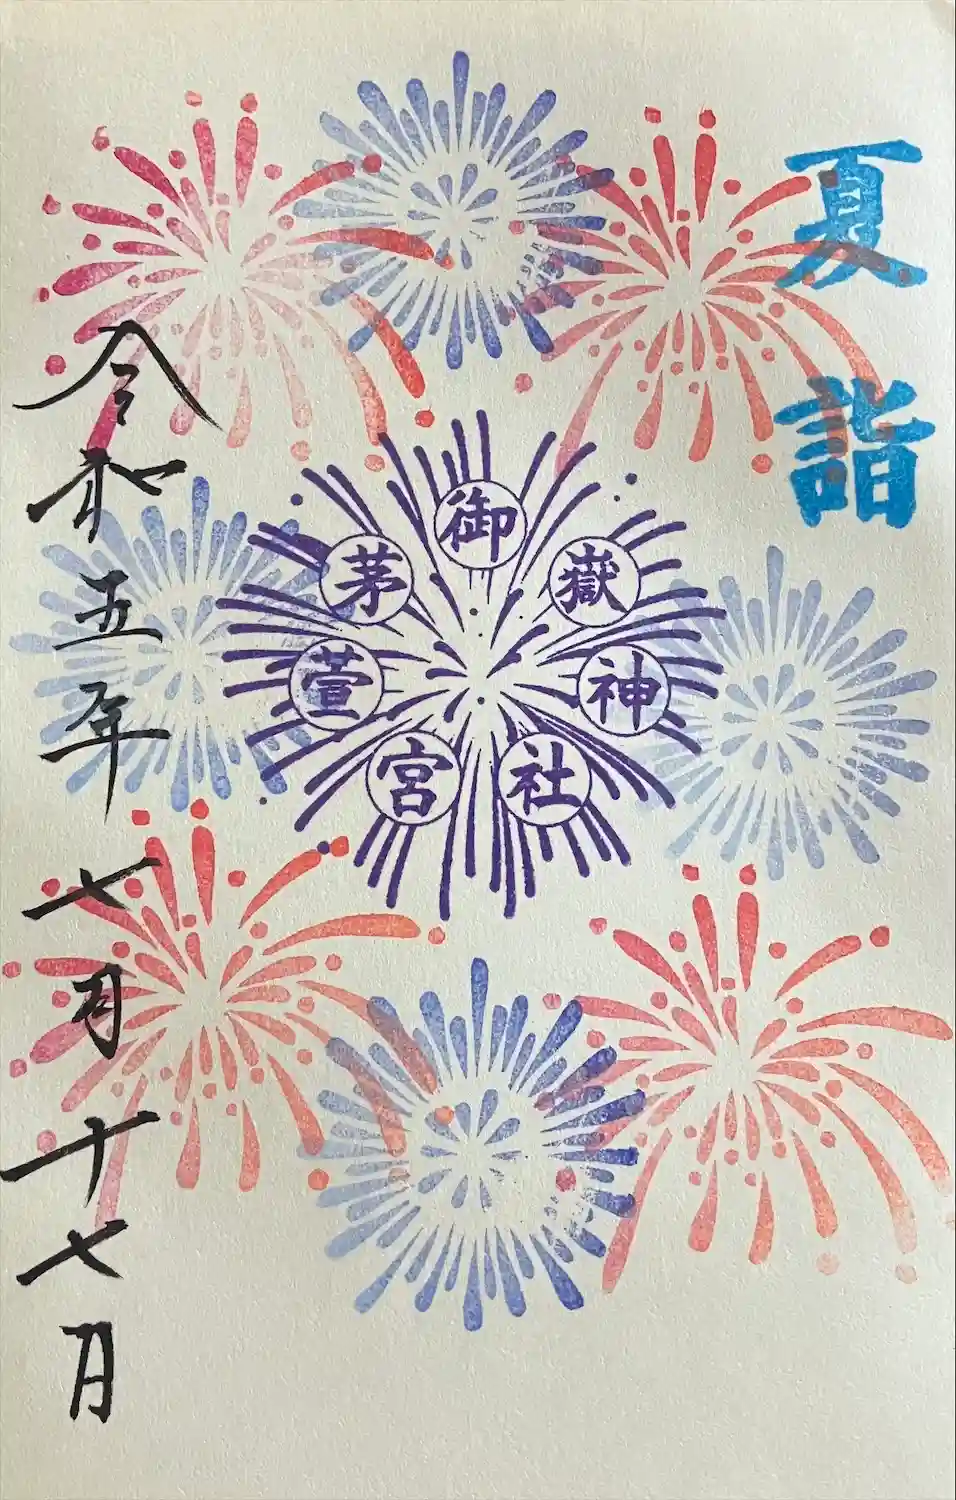 夏詣
御嶽神社
茅萱宮
令和五年七月十七日